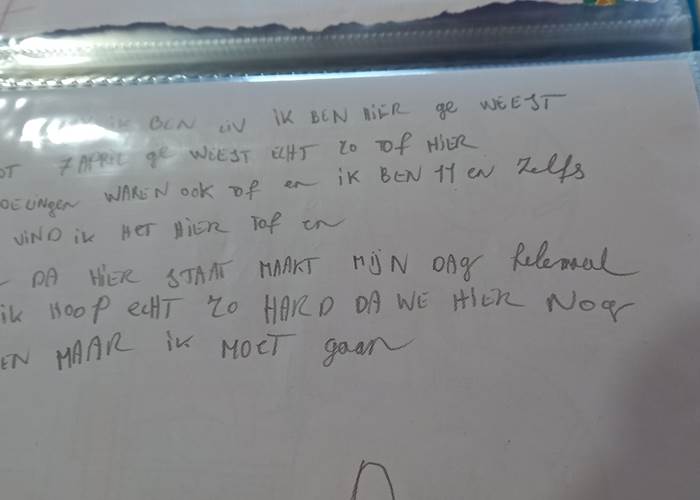 ik BEN LIV iK BEN HiER ge WEEST
OT 7 APRIL ge WEEST ECHT ZO TOf HIER
OELINGEN WAREN OOK TOf en iK BEN 11 EN ZELfS
ViND iK HET HiER Tof en
DA HiER STAAT MAAKT MIJN DAg helemaal
ik HOOP ECHT ZO HARD DA WE HiER Nog
EN MAAR iK MOET gaan